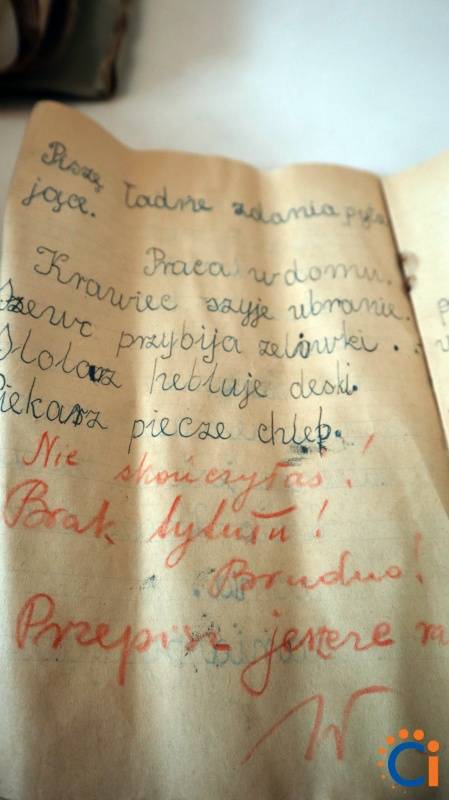 Piszę ładne zdania pyta
jące.
Praca w domu.
Krawiec szyje ubranie.
Szewc przybija zelówki.
Stolarz hebluje deski.
Piekarz piecze chlep.
Nie skończyłaś!
Brak tytułu!
Brudno!
Przepisz jeszcze ra
W
Ci